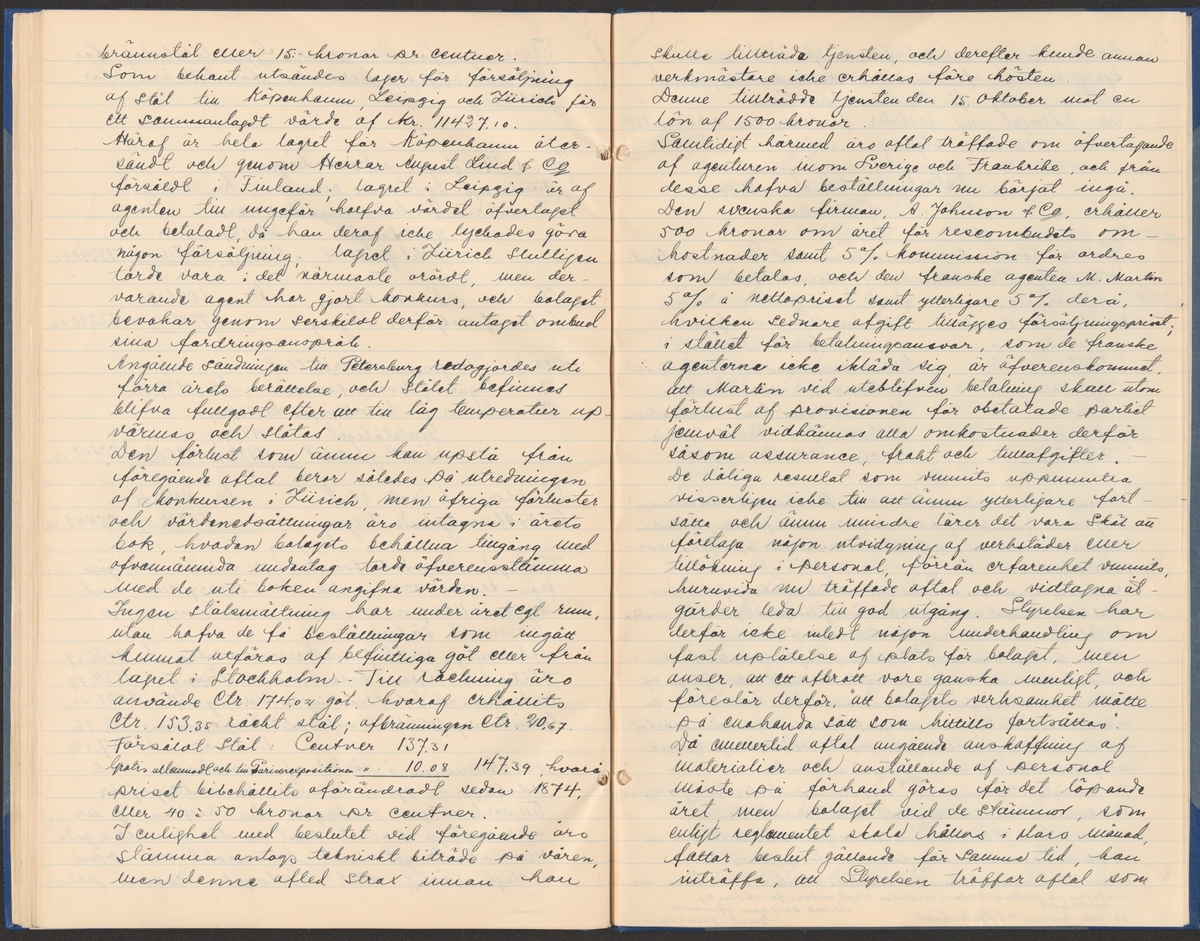 brännstål eller 15- kronor pr centner.
Som bekant utsändes lager för försäljning
af stål till Köpenhamn, Leipzig och Zürich för
ett sammanlagdt värde af Kr. 11427.10.
Häraf är hela lagret för Köpenhamn åter-
sändt och genom Herrar August Lind & Co
försåldt i Finland; lagret i Leipzig är af
agenten till ungefär halfva värdet öfvertaget
och betaladt, då han deraf icke lyckades göra
någon försäljning; lagret i Zürich slutligen
torde vara i det närmaste orördt, men der-
varande agent har gjort konkurs, och bolaget
bevakar genom serskildt derför antaget ombud
sina fordringsanspråk.
Angående sändningen till Petersburg redogjordes uti
förra årets berättelse, och stålet befinnes
blifva fullgodt efter att till låg temperatur upp-
värmas och slåtas
Den förlust som ännu kan uppstå från
föregående aftal beror således på utredningen
af konkursen i Zürich, men öfriga förluster
och värdenedsättningar äro intagna i årets
bok, hvadan bolagets behållna tillgång med
ofvannämnda undantag torde öfverensstämma
med de uti boken angifna värden. –
Ingen stålsmältning har under året egt rum,
utan hafva de få beställningar som ingått
kunnat utföras af befintliga göt eller från
lagret i Stockholm. – Till räckning äro
använde Ctr. 174.02 göt, hvaraf erhållits
Ctr. 153.35 räckt stål; afbränningen Ctr. 20.67.
Försåldt Stål: Centner 137.31
Gratis utlemnadt och till Pariserexpositionen " 10.08 147.39, hvars
priset bibehållits oförändradt sedan 1874,
eller 40 à 50 kronor pr centner.
I enlighet med beslutet vid föregående års
stämma antogs tekniskt biträde på våren,
men denne afled strax innan han
skulle tillträda tjensten, och derefter kunde annan
verkmästare icke erhållas före hösten.
Denne tillträdde tjensten den 15 oktober mot en
lön af 1500 kronor.
Samtidigt härmed äro aftal träffade om öfvertagande
af agenturen inom Sverige och Frankrike, och från
desse hafva beställningar nu börjat ingå.
Den svenska firman, A Johnson & Co. erhåller
500 kronor om året för reseombudets om-
kostnader samt 5 % kommission för ordres
som betalas, och den franske agenten M. Martin
5 % å nettopriset samt ytterligare 5 % derå,
hvilken sednare afgift tillägges försäljningspriset;
i stället för betalningsansvar, som de franske
agenterne icke ikläda sig, är öfverenskommet,
att Martin vid uteblifven betalning skall utom
förlust af provisionen för obetalade partiet
jemväl vidkännas alla omkostnader derför
såsom assurance, frakt och tullafgifter. –
De dåliga resultat som vunnits uppmuntra
visserligen icke till att ännu ytterligare fort-
sätta och ännu mindre lärer det vara skäl att
företaga någon utvidgning af verkstäder eller
tillökning i personal, förrän erfarenhet vunnits,
huruvida nu träffade aftal och vidtagna åt-
gärder leda till god utgång. Styrelsen har
derför icke inledt någon underhandling om
fast upplåtelse af plats för bolaget, men
anser, att ett afbrott vore ganska menligt, och
föreslår derför, "att bolagets verksamhet måtte
på enahanda sätt som hittills fortsättas".
Då emellertid aftal angående anskaffning af
materialier och anställande af personal
måste på förhand göras för det löpande
året, men bolaget vid de stämmor, som
enligt reglementet skola hållas i Mars månad,
fattar beslut gällande för samma tid, kan
inträffa, att Styrelsen träffar aftal som